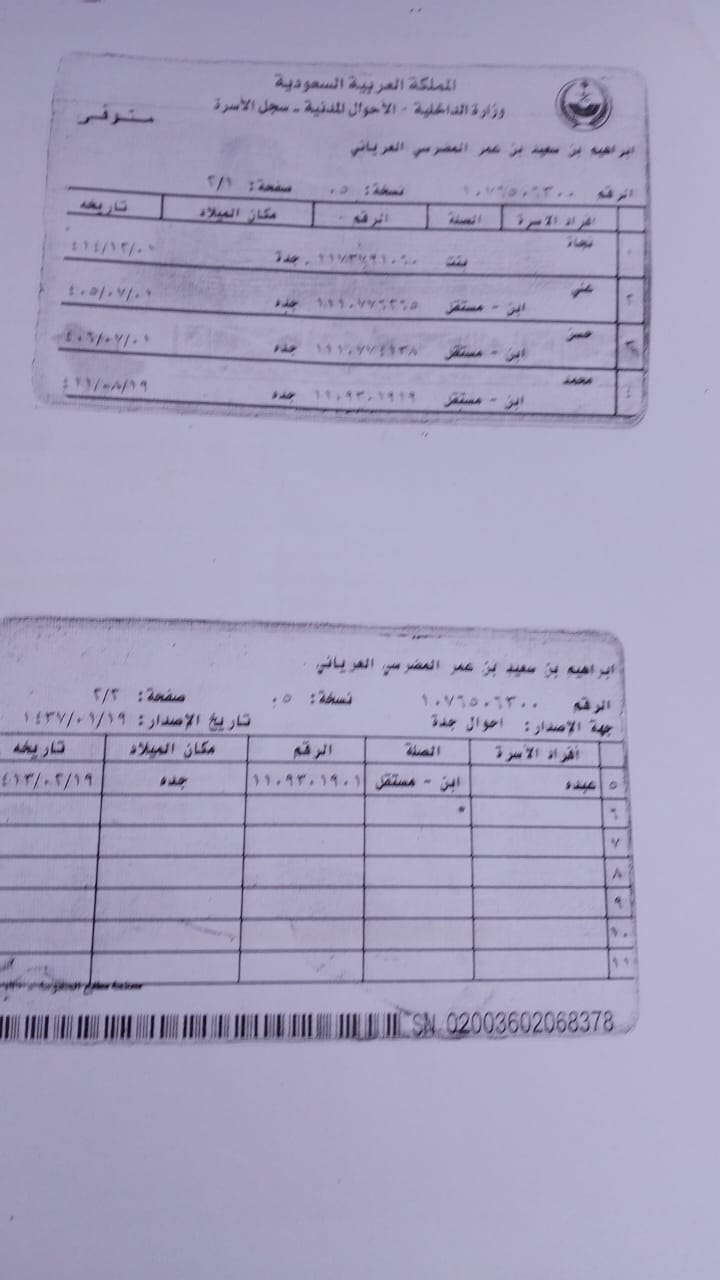 المملكة العربية السعودية
وزارة الداخلية - الأحوال المدنية - سجل الأسرة
متوفى
ابراهيم بن سعيد بن عمر المضرسي العرياني
الرقم ١٠٧٦٥٠٦٣٠٠ نسخة: ٠٥ صفحة: ٢/١
افراد الاسرة الصلة الرقم مكان الميلاد تاريخه
نجاة بنت جدة
٢ علي ابن - مستقل جده
٣ حسن ابن - مستقل جده
٤ محمد ابن - مستقل ١١٠٩٣٠١٩١٩ جده
ابراهيم بن سعيد بن عمر المضرسي العرياني
الرقم ١٠٧٦٥٠٦٣٠٠ نسخة: ٠٥ صفحة: ٢/٢
جهة الإصدار: احوال جدة تاريخ الإصدار: ١٤٣٧/٠١/١٩
أفراد الأسرة الصلة الرقم مكان الميلاد تاريخه
٥ عبده ابن - مستقل ١١٠٩٣٠١٩٠١ جده ٤١٣/٠٢/١٩
٦
٧
٨
٩
١٠
١١
SN 02003602068378